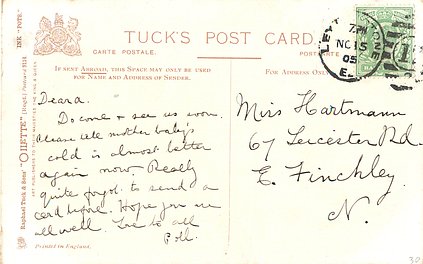 TUCK'S POST CARD
CARTE POSTALE
POSTKARTE
IF SENT ABROAD, THIS SPACE MAY ONLY BE USED
FOR NAME AND ADDRESS OF SENDER.
FOR ADDRESS ONLY
LEYT
NO 15
05
E.
Dear a.
Do come & see us soon.
Please tell mother baby's
cold is almost better
again now. Really
quite forgot to send a
card before. Hope you are
all well. Love to all
Poll.
Miss Hartmann
67 Leicester Rd.
E. Finchley
N.
Printed in England.
Raphael Tuck & Sons' "OILETTE"